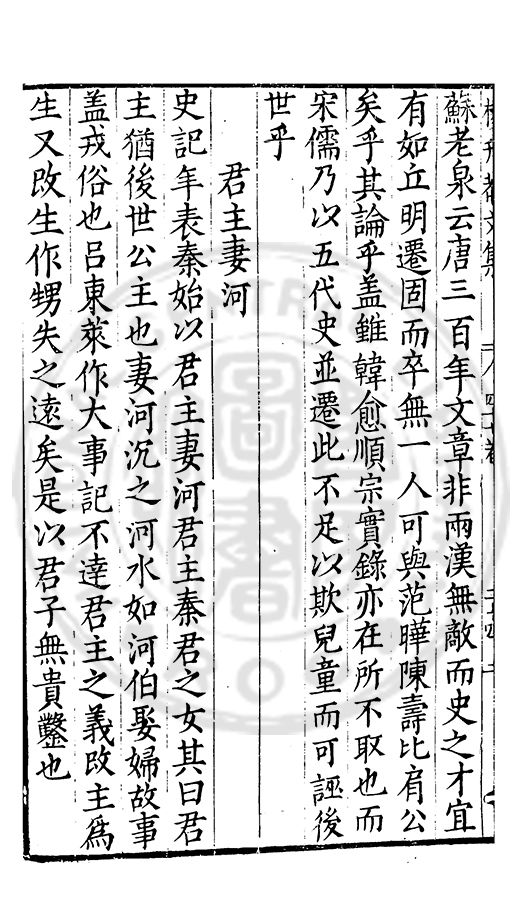 蘇老泉云唐三百年文章非兩漢無敵而史之才宜
有如丘明遷固而卒無一人可與范曄陳壽比肩公
矣乎其論乎盖雖韓愈順宗實錄亦在所不取也而
宋儒乃以五代史並遷此不足以欺兒童而可誣後
世乎
君主妻河
史記年表秦始以君主妻河君主秦君之女其曰君
主猶後世公主也妻河沉之河水如河伯娶婦故事
盖戎俗也呂東萊作大事記不達君主之義改主爲
生又改生作甥失之遠矣是以君子無貴鑿也